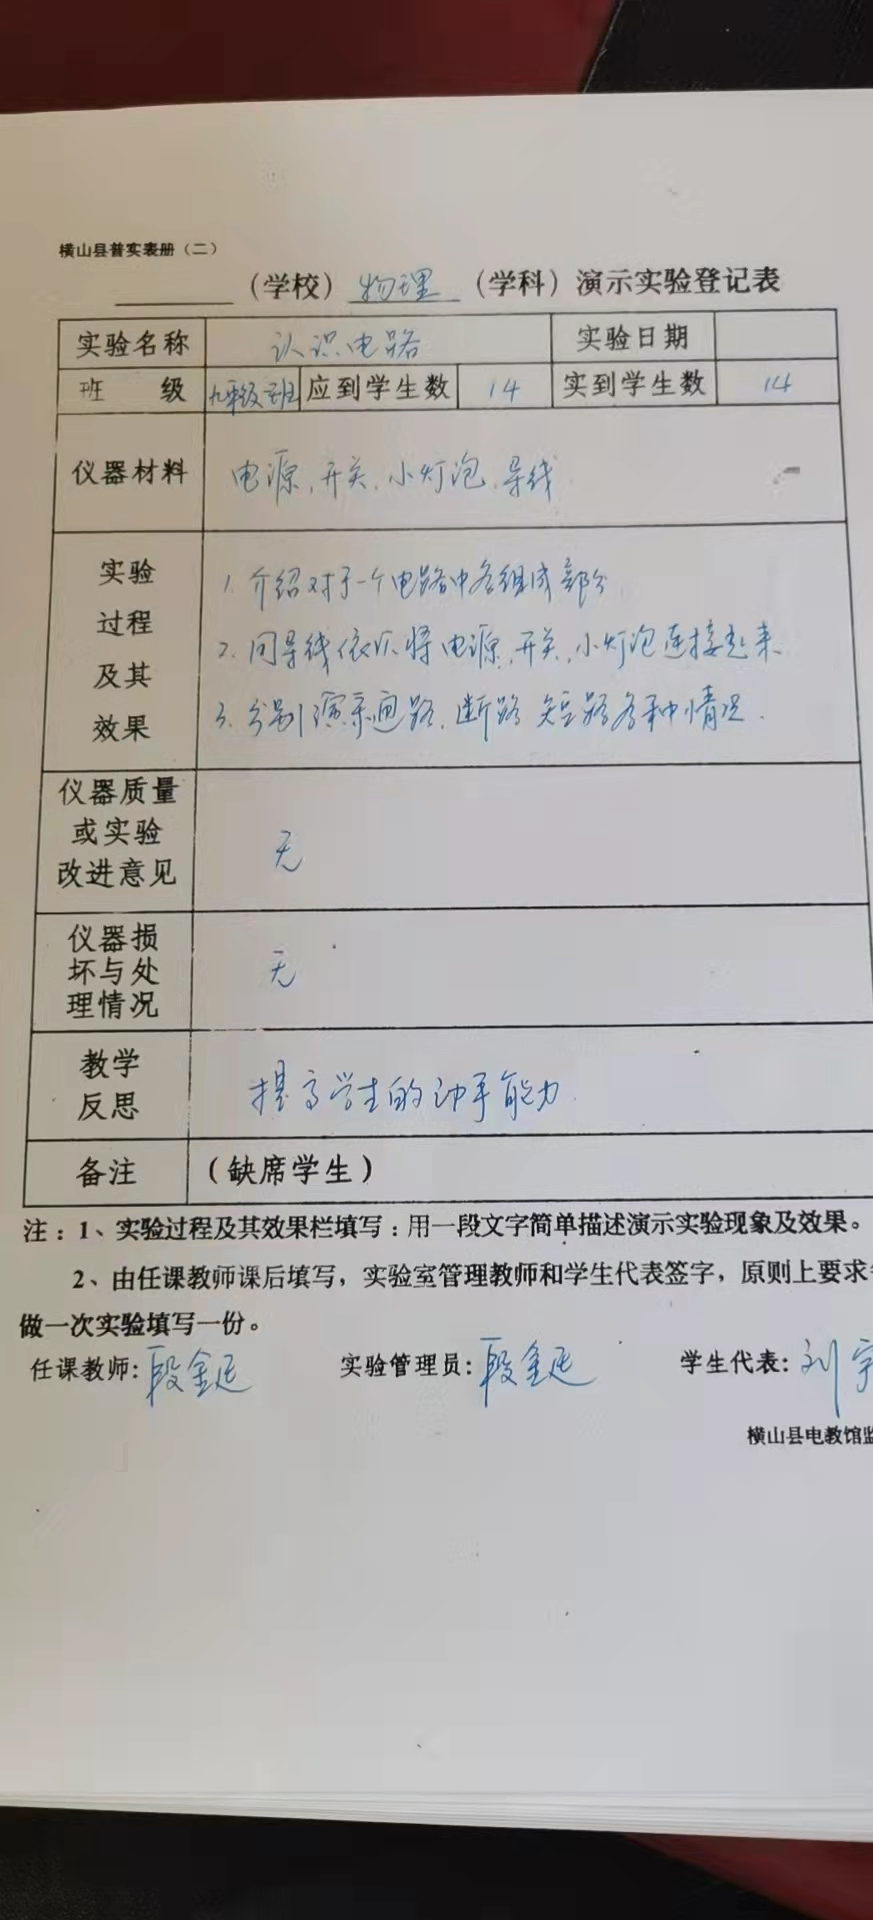 横山县普实表册（二）
（学校）物理（学科）演示实验登记表
实验名称 认识电路 实验日期
班 级 九年级 班 应到学生数 14 实到学生数 14
仪器材料 电源、开关、小灯泡、导线
实验
过程
及其
效果
1. 介绍对于一个电路中各组成部分
2. 同导线依次将电源、开关、小灯泡连接起来
3. 分别演示通路、断路 短路各种情况.
仪器质量
或实验
改进意见
无
仪器损
坏与处
理情况
无
教学
反思
提高学生的动手能力.
备注 （缺席学生）
注：1、实验过程及其效果栏填写：用一段文字简单描述演示实验现象及效果。
2、由任课教师课后填写，实验室管理教师和学生代表签字，原则上要求
做一次实验填写一份。
任课教师: 段金延 实验管理员: 段金延 学生代表: 刘宇
横山县电教馆监